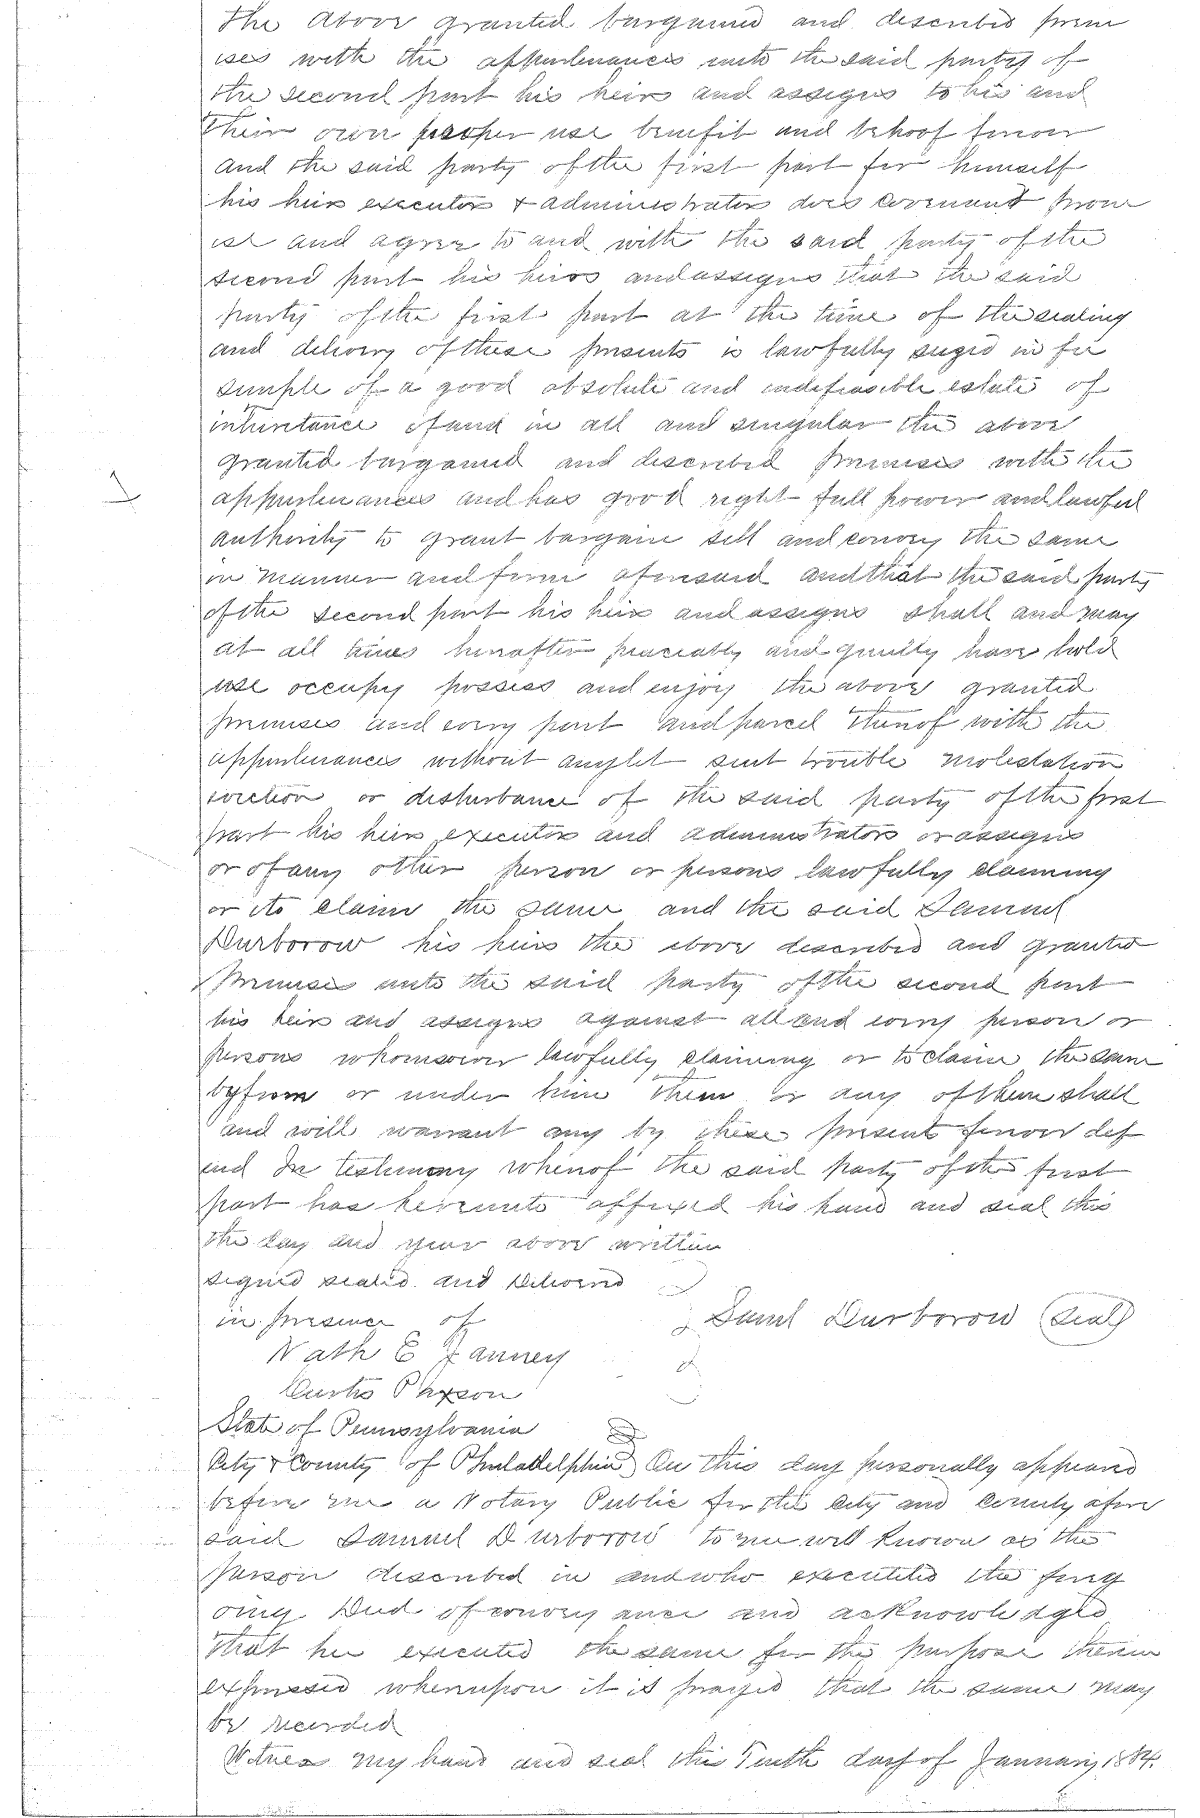 the above granted bargained and described prem
ises with the appurtenances unto the said party of
the second part his heirs and assigns to his and
their own proper use benefit and behoof forever
and the said party of the first part for himself
his heirs executors & administrators does covenant prom
ise and agree to and with the said party of the
second part his heirs and assigns that the said
party of the first part at the time of the sealing
and delivery of these presents is lawfully seized in fee
simple of a good absolute and indefeasible estate of
inheritance of and in all and singular the above
granted bargained and described premises with the
appurtenances and has good right full power and lawful
authority to grant bargain sell and convey the same
in manner and form aforesaid and that the said party
of the second part his heirs and assigns shall and may
at all times hereafter peaceably and quietly have hold
use occupy possess and enjoy the above granted
premises and every part and parcel thereof with the
appurtenances without any let suit trouble molestation
eviction or disturbance of the said party of the first
part his heirs executors and administrators or assigns
or of any other person or persons lawfully claiming
or to claim the same and the said Samuel
Durborow his heirs the above described and granted
premises unto the said party of the second part
his heirs and assigns against all and every person or
persons whomsoever lawfully claiming or to claim the same
by from or under him them or any of them shall
and will warrant any by these presents forever def
end In testimony whereof the said party of the first
part has hereunto affixed his hand and seal this
the day and year above written
signed sealed and Delivered
in presence of Saml Durborow (seal)
Nath E Janney
Curtis Paxson
State of Pennsylvania
City & County of Philadelphia On this day personally appeared
before me a Notary Public for the City and County afore
said Samuel Durborow to me well known as the
person described in and who executed the foreg
oing Deed of conveyance and acknowledged
that he executed the same for the purpose therein
expressed whereupon it is prayed that the same may
be recorded
Witness my hand and seal this Tenth day of January 1884.